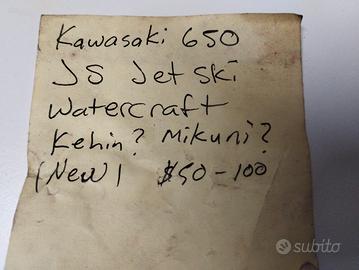 Kawasaki 650
JS Jet Ski
Watercraft
Kehin? Mikuni?
(New) $50-100
subito